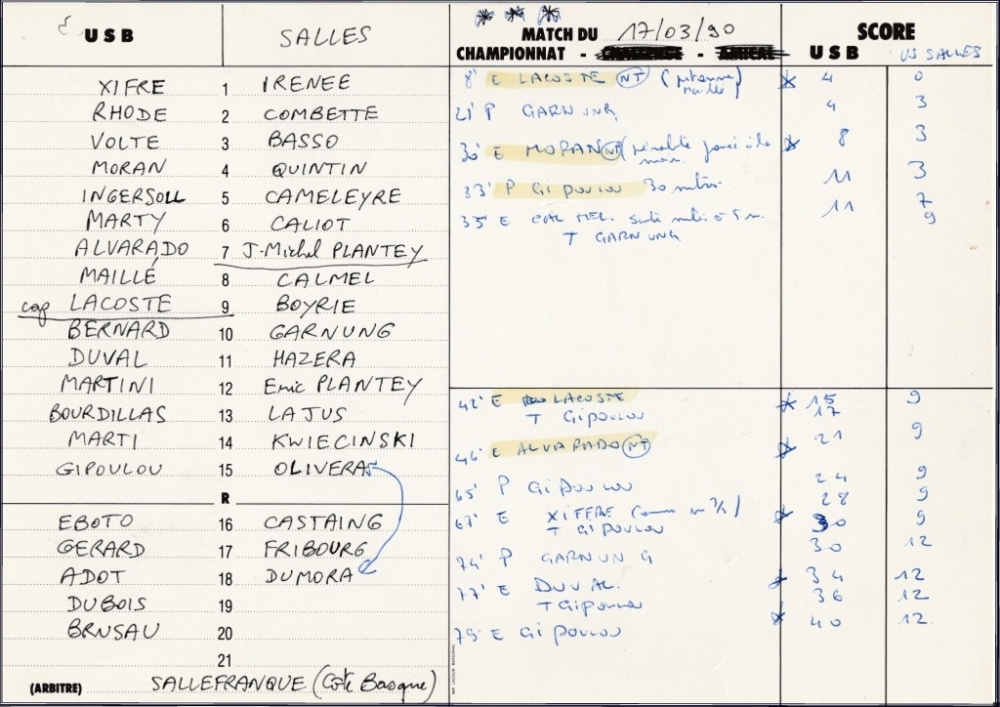 USB SALLES
XIFRE 1 IRENEE
RHODE 2 COMBETTE
VOLTE 3 BASSO
MORAN 4 QUINTIN
INGERSOLL 5 CAMELEYRE
MARTY 6 CALIOT
ALVARADO 7 J-Michel PLANTEY
MAILLÉ 8 CALMEL
cap LACOSTE 9 BOYRIE
BERNARD 10 GARNUNG
DUVAL 11 HAZERA
MARTINI 12 Eric PLANTEY
BOURDILLAS 13 LAJUS
MARTI 14 KWIECINSKI
GIPOULOU 15 OLIVERA
R
EBOTO 16 CASTAING
GERARD 17 FRIBOURG
ADOT 18 DUMORA
DUBOIS 19
BRUSAU 20
21
(ARBITRE) SALLEFRANQUE (Cote Basque)
MATCH DU 17/03/90
CHAMPIONNAT - CHALLENGE - AMICAL
SCORE
USB US SALLES
8' E LACOSTE NT 4 0
21' P GARNUNG 4 3
30' E MORAN NT 8 3
33' P GIPOULOU 30 mètres 11 3
35' E CALMEL 11 7
T GARNUNG 9
42' E LACOSTE 15 9
T GIPOULOU 17
46' E ALVARADO NT 21 9
65' P GIPOULOU 24 9
67' E XIFFRE 28 9
T GIPOULOU 30 9
74' P GARNUNG 30 12
77' E DUVAL 34 12
T GIPOULOU 36 12
79' E GIPOULOU 40 12